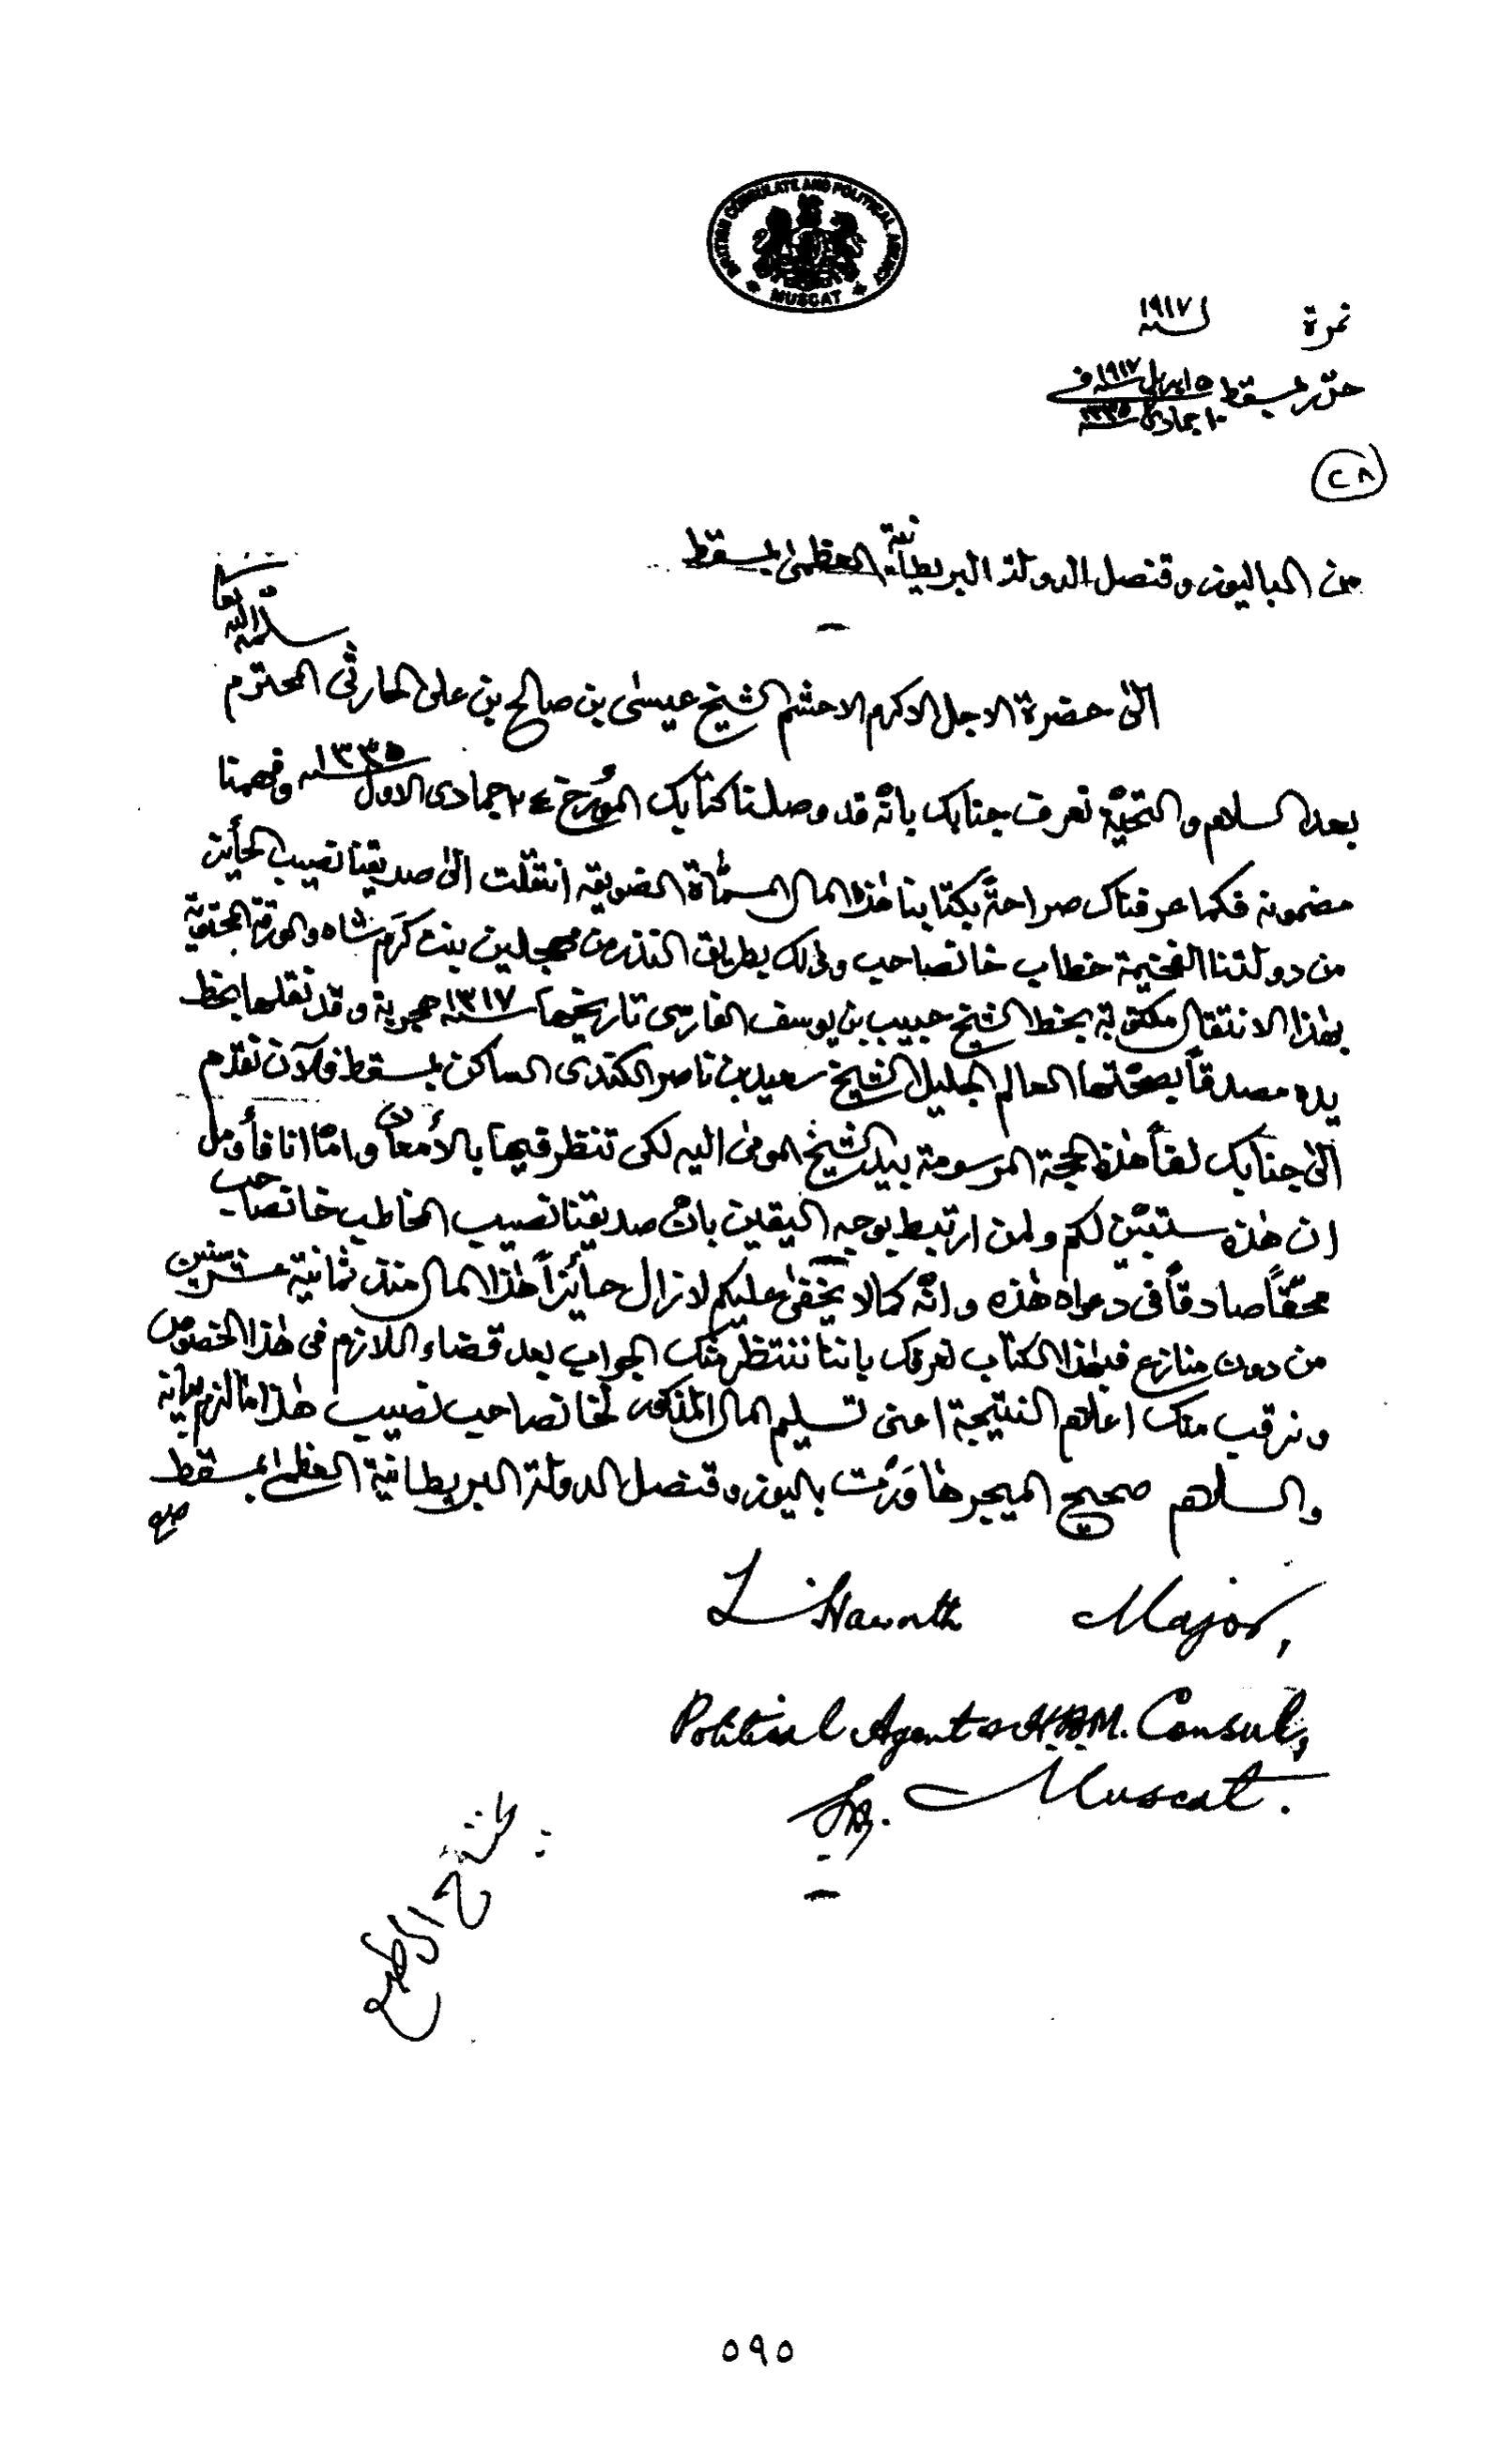 BRITISH CONSULATE AND POLITICAL AGENCY
MUSCAT
نمرة سنة ١٩١٧
حرر بمسقط في ٥ ابريل سنة ١٩١٧
جمادى سنة ١٣٣٥
٢٨
من الباليوز وقنصل الدولة البريطانية العظمىٰ بمسقط
سلمه الله تعالى
الىٰ حضرة الاجل الاكرم الاحشم الشيخ عيسىٰ بن صالح بن علي الحارثي المحترم
بعد السلام والتحيّة نعرف جنابك بانّه قد وصلنا كتابك المؤرخ ٢٤ جمادى الاول سنة ١٣٣٥ وفهمنا
مضمونه فكما عرفناك صراحةً بكتابنا هٰذا المال المسمّاة الضويقه انتقلت الىٰ صديقنا نصيب الحأيز
من دولتنا الفخيمة خطاب خانصاحب وذلك بطريق النذر من بنت كرَم شاه والورقة المحتوية
بهٰذا الانتقال مكتوبة بخط الشيخ حبيب بن يوسف الفارسي تاريخها سنة ١٣١٧ هجرية وقد نقلها بخط
يده مصدقاً بصحّتها العالم الجليل الشيخ سعيد بن ناصر الكندى الساكن بمسقط فالآن نقدم
الىٰ جنابك لفاً هٰذه الحجة المرسومة بيد الشيخ المومىٰ اليه لكى تنظر فيها بالأمعان وامّا انا فأومل
ان هٰذه ستبيّن لكم ولمن ارتبط بوجه اليقين بانّ صديقنا نصيب المخاطب خانصاحب
محقّاً صادقاً فى دعواه هٰذه وانّه كما لا يخفىٰ عليكم لا زال حائزاً هٰذا المال منذ ثمانية عشر سنين
من دون منازع فبهٰذا الكتاب نعرفك باننا ننتظر منك الجواب بعد قضاء اللازم فى هٰذا الخصوص
ونرقب منك اعلام النتيجة اعنى تسليم المال المذكور لخانصاحب نصيب هٰذا ما لزم بيانه
والسلام صحيح الميجر هاوَرْث باليوز وقنصل الدولة البريطانية العظمىٰ بمسقط
صح
L Haworth Major,
Political Agent & H.B.M. Consul,
Muscat.
٥٩٥